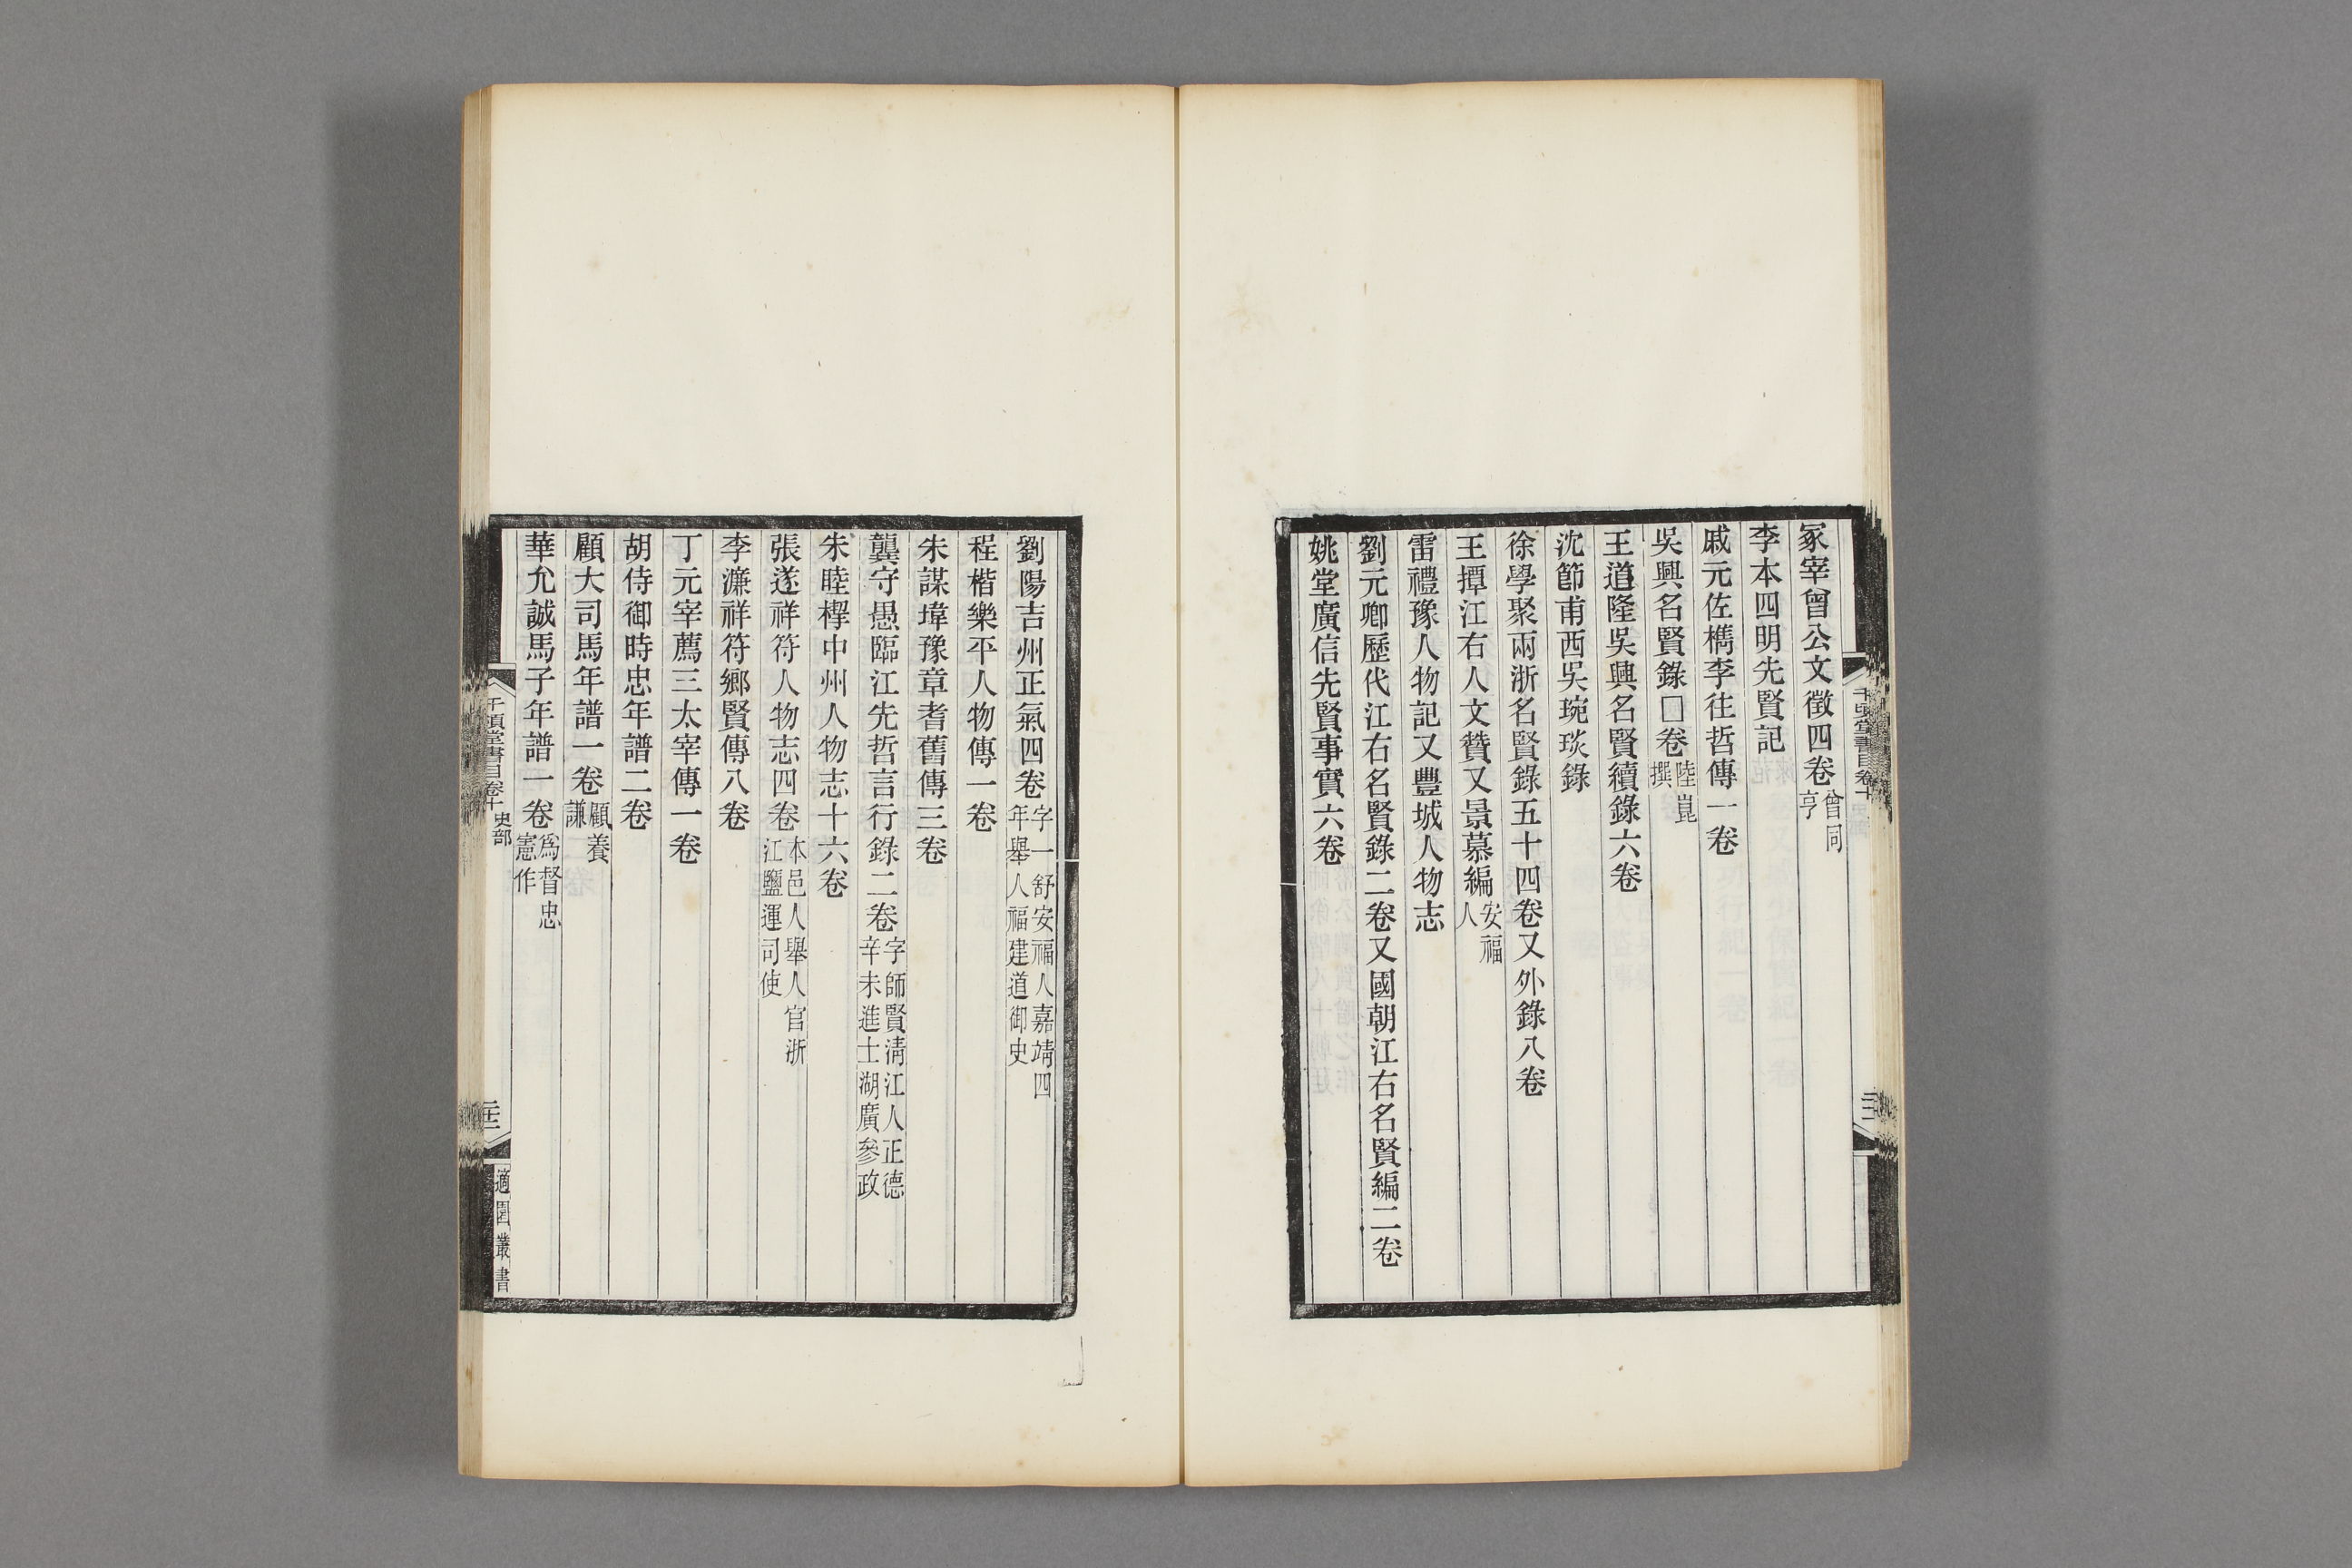 冢宰曾公文徵四卷曾同亨
李本四明先賢記
戚元佐檇李往哲傳一卷
吳興名賢錄□卷陸崑撰
王道隆吳興名賢續錄六卷
沈節甫西吳琬琰錄
徐學聚兩浙名賢錄五十四卷又外錄八卷
王撢江右人文贊又景慕編安福人
雷禮豫人物記又豐城人物志
劉元卿歷代江右名賢錄二卷又國朝江右名賢編二卷
姚堂廣信先賢事實六卷
劉陽吉州正氣四卷字一舒安福人嘉靖四年舉人福建道御史
程楷樂平人物傳一卷
朱謀㙔豫章耆舊傳三卷
龔守愚臨江先哲言行錄二卷字師賢清江人正德辛未進士湖廣參政
朱睦㮮中州人物志十六卷
張遂祥符人物志四卷本邑人舉人官浙江鹽運司使
李濂祥符鄉賢傳八卷
丁元宰薦三太宰傳一卷
胡侍御時忠年譜二卷
顧大司馬年譜一卷顧養謙
華允誠馬子年譜一卷爲督忠憲作
千頃堂書目卷十 史部
適園叢書